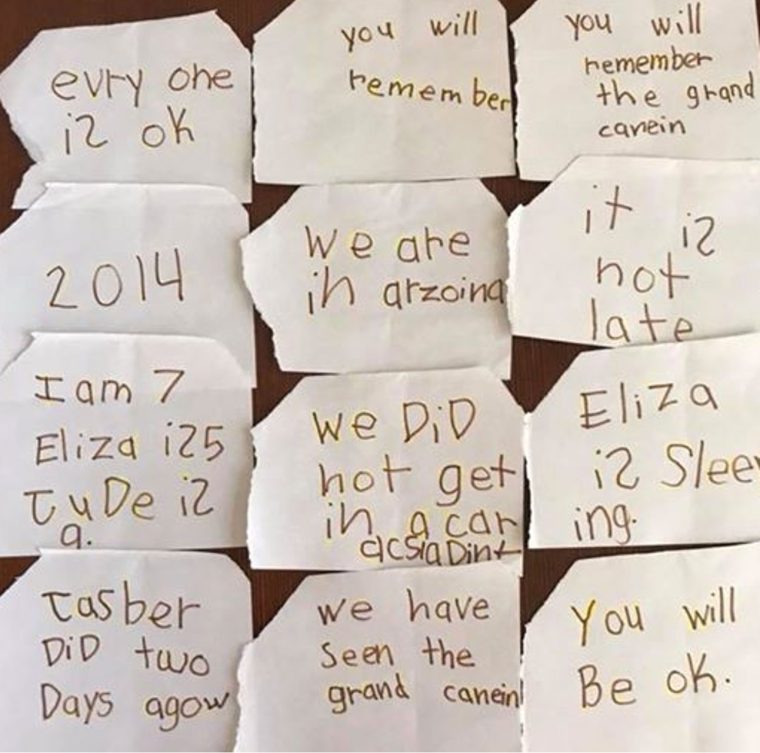 evry one
i2 ok
you will
remember
you will
remember
the grand
canein
2014
we are
in arzoina
it i2
not
late
I am 7
Eliza i25
Jude i2
9.
we DiD
not get
in a car
acsiaDint
Eliza
i2 Slee
ing.
Jasber
DiD two
Days agow
we have
seen the
grand canein
You will
Be ok.